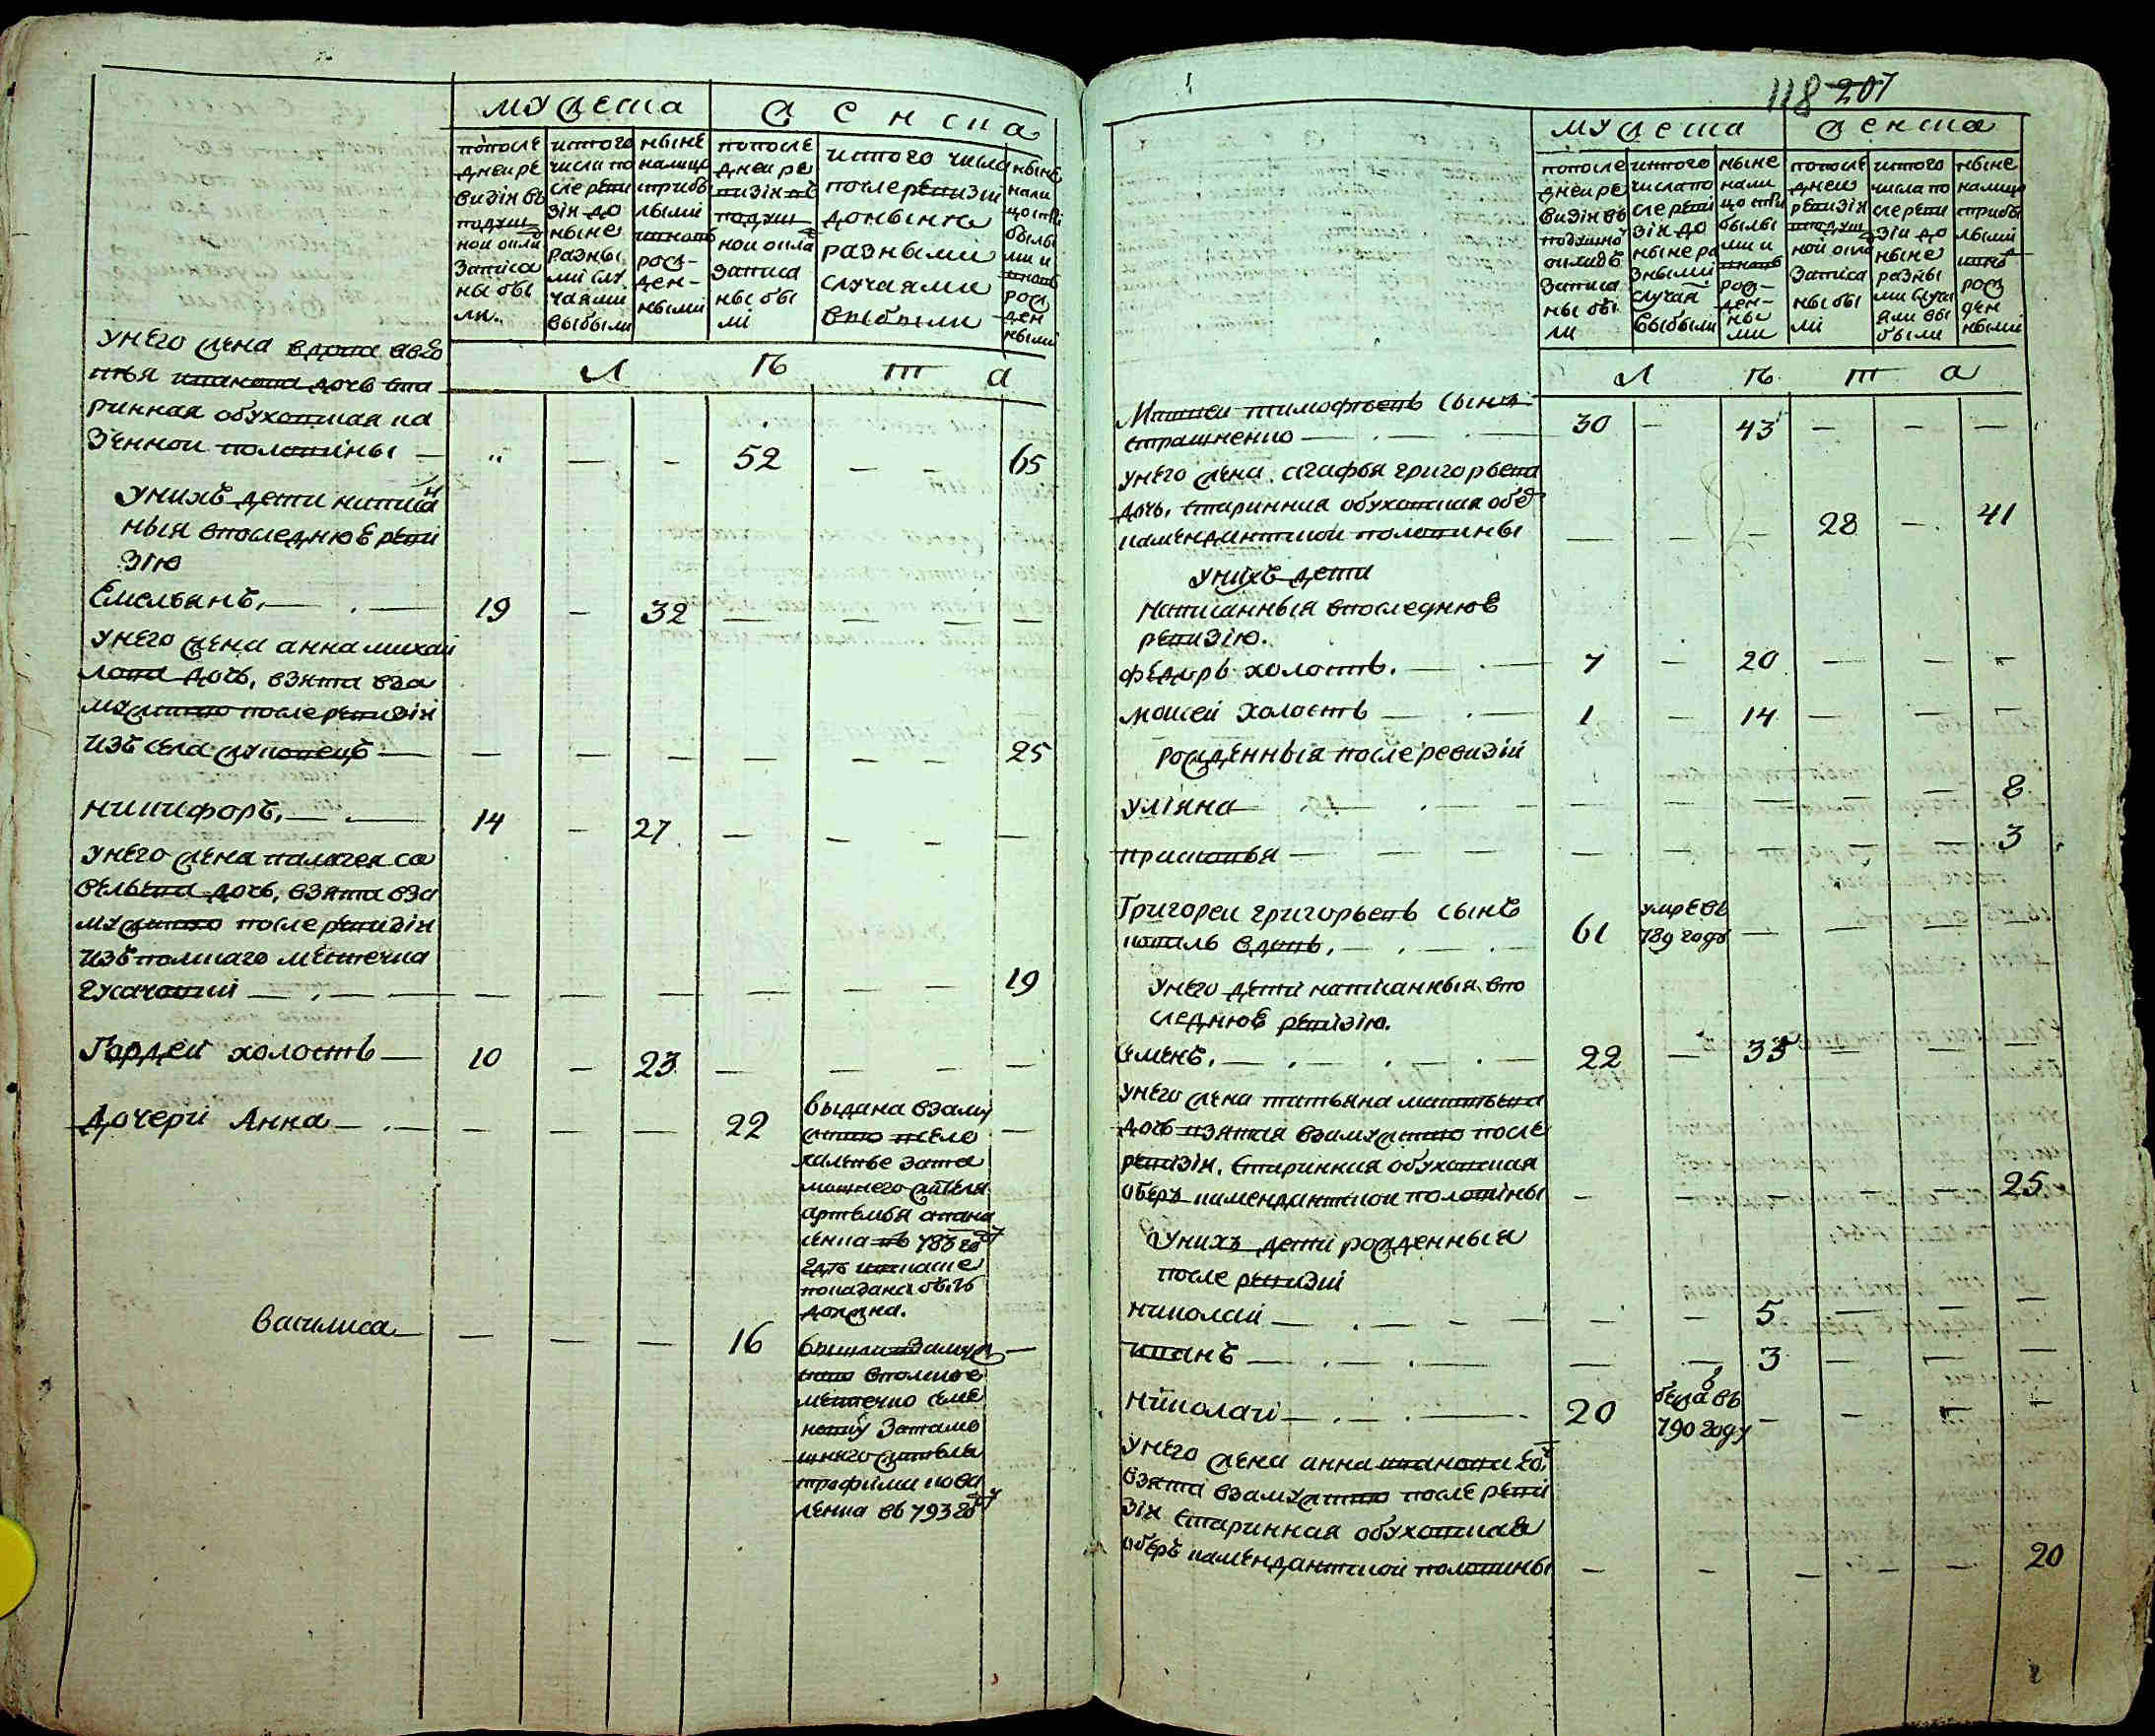 мужеска
женска
попоследней ревизiи въ подушной окладъ записаны были
изтого числа после ревизiи до ныне разными случаями выбыли
ныне налицо съ прибылыми и вновь рожденными
попоследней ревизiи въ подушной окладъ записаны были
изтого числа после ревизiи доныне разными случаями выбыли
ныне налицо съ прибылыми и вновь рожденными
лѣта
унего жена вдова авдо
тья иванова дочь ста
ринная обуховская ка
зенной половины — 52 — 65
унихъ дети написа
ныя впоследнюѣ реви
зiю
Емельянъ, — 19 — 32 — — — —
унего жена анна михай
лова дочь, взята вза
мужство после ревизiи
изъ села жуковецъ — — — — — — — 25
никифоръ, — 14 — 27 — — — —
унего жена палагея са
вельева дочь, взята вза
мужство после ревизiи
изъ полскаго местечка
гусачовки — — — — — — 19
Гордей холостъ — 10 — 23 — — — —
дочери Анна — — — — 22
выдана взаму
жство вселе
халепье зата
мошнего жителя
артемья
въ 785 году
должна.
василиса — — — — 16
вполское
местечко
зтамо
шнего жителя
трофима кова
ленка въ 793 году
118 207
мужеска
женска
попоследней ревизiи въ подушной окладъ записаны были
изтого числа после ревизiи до ныне разными случая выбыли
ныне налицо сприбылыми и вновь рожденными
попоследней ревизiи въ подушной окла записаны были
изтого числа после ревизiи до ныне разными случаями выбыли
ныне налицо сприбылыми вновь рожденными
лѣта
Матвей тимофѣевъ сынъ
страшненко — 30 — 43 — — —
унего жена агафья григорьева
дочь, старинная обуховская обер
каменданткой половины — — — 28 — 41
унихъ дети
написанныя впоследнюѣ
ревизiю.
федоръ холостъ. — 7 — 20 — — —
моисей холостъ — 1 — 14 — — —
рожденныя после ревизiи
улiяна — — — — — — 8
прасковья — — — — — — 3
Григореи григорьевъ сынъ
коваль вдовъ, — 61 умре въ 789 году — — — —
унего дети написанныя впо
следнюѣ ревизiю.
семенъ, — 22 — 33 — — —
унего жена татьяна матвѣева
дочь взятая взамужство после
ревизiи, старинная обуховская
оберъ камендантской половины — — — — — 25
унихъ дети рожденныя
после ревизiи
николай — — — 5 — — —
иванъ — — — 3 — — —
николаи — 20 бежа въ 790 году — — — —
унего жена анна иванова до
взята взамужство после реви
зiи старинная обуховская
оберъ камендантской половины — — — — — 20